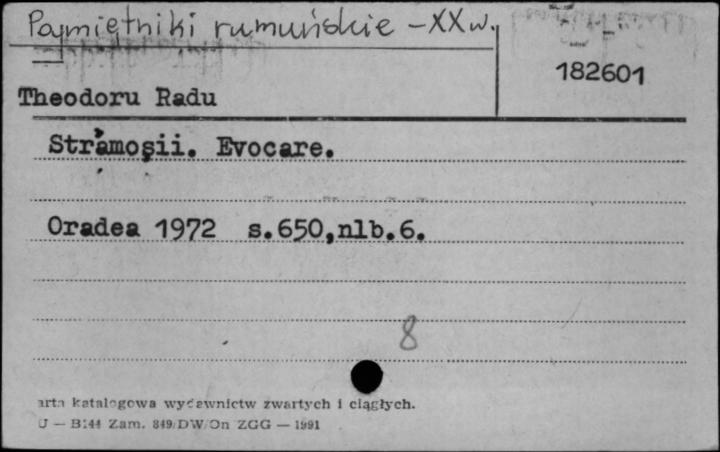 Pamiętniki rumuńskie – XX w.
182601
Theodoru Radu
Strămoşii. Evocare.
Oradea 1972 s.650,nlb.6.
8
arta katalogowa wydawnictw zwartych i ciągłych.
U — B144 Zam. 849/DW/On ZGG — 1991